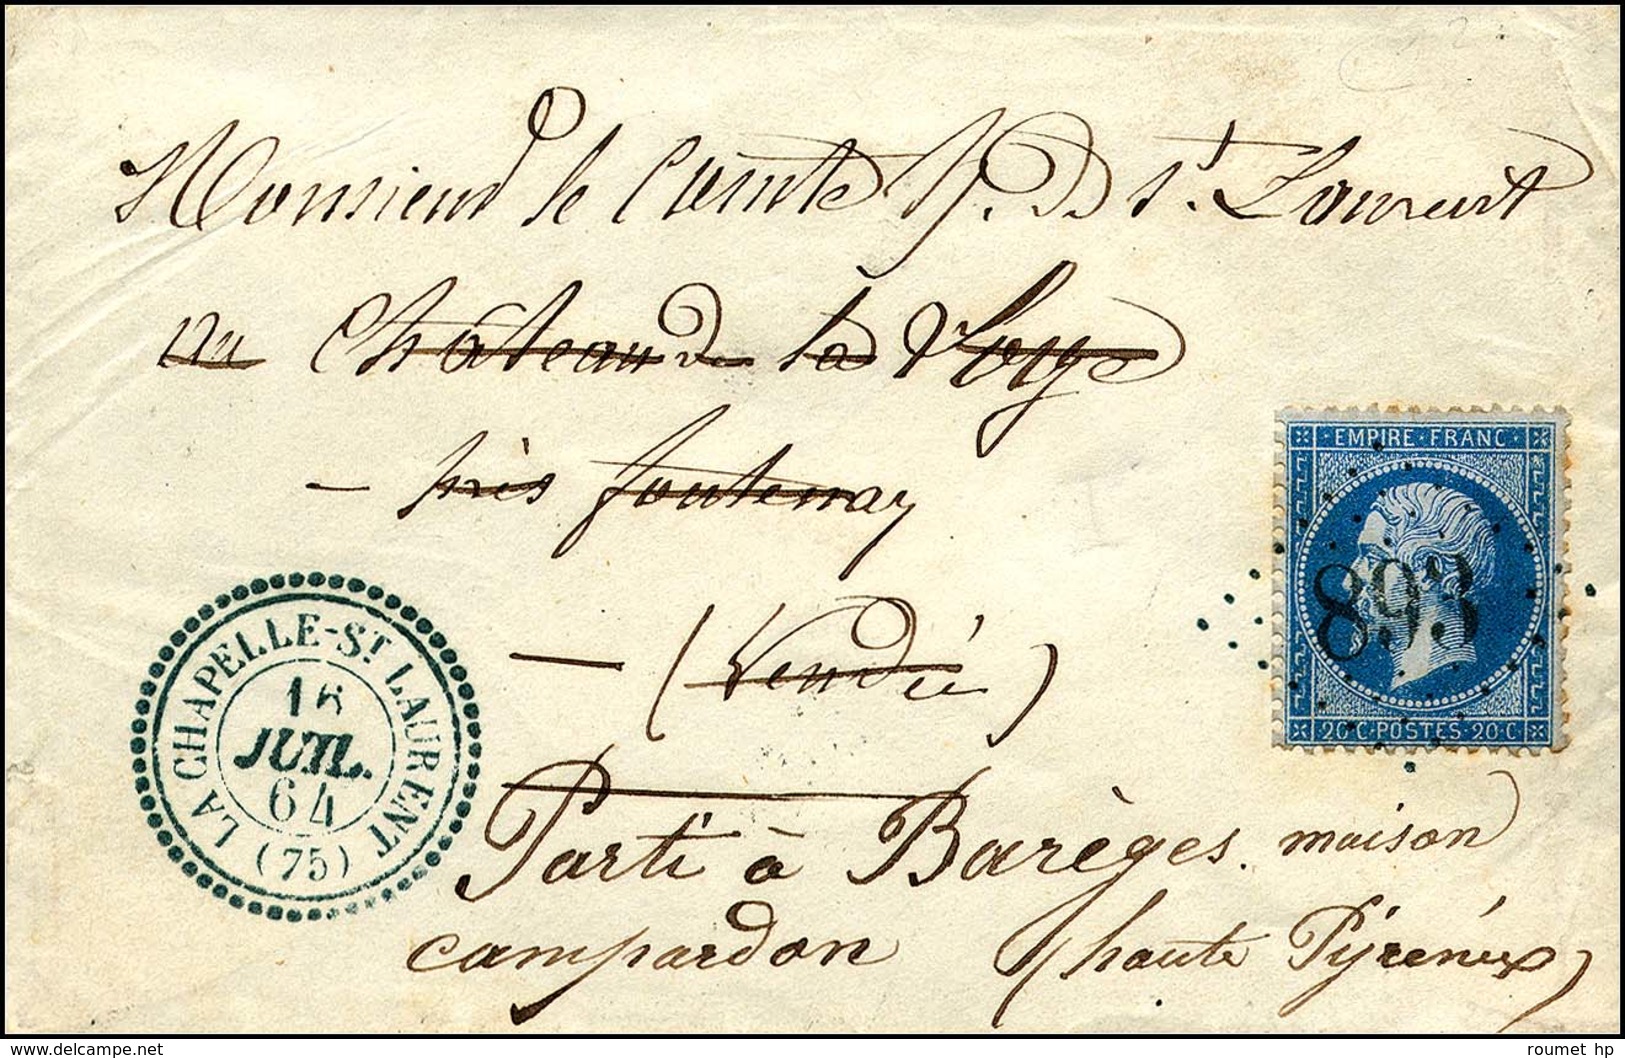 Monsieur le Comte H. De St. Laurent
au Château de la Loge
– près fontenay
– (Vendée)
EMPIRE FRANC
893
20 C·POSTES·20 C
LA CHAPELLE-ST LAURENT
16
JUIL.
64
(75)
Parti à Barèges. maison
campardon (haute Pyrénées)
www.delcampe.net
roumet hp